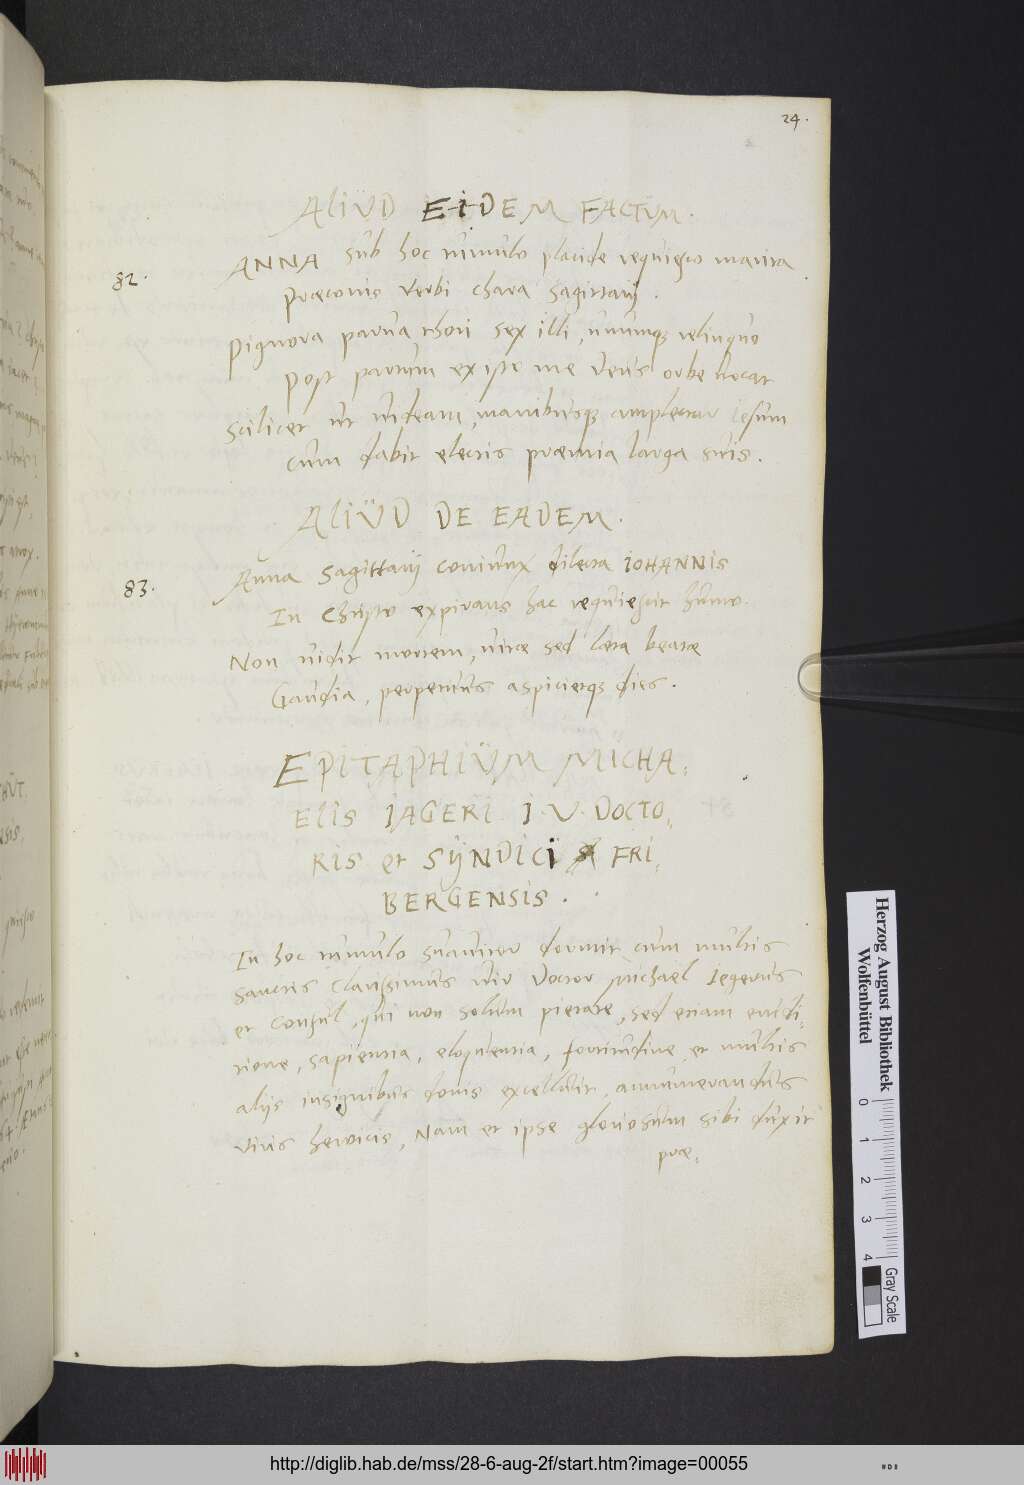 24.
ALIUD EIDEM FACTUM.
82. ANNA sub hoc tumulo placide requiesco marita
Præconis verbi chara Sagittarij.
Pignora parva thori sex illi, unumq; relinquo
Post partum ex isto me Deus orbe vocat
Scilicet ut videam, manibusq; amplectar Iesum
cum dabit electis præmia larga suis.
ALIUD DE EADEM.
83. Anna Sagittarij coniunx dilecta IOHANNIS
In Christo expirans hac requiescit humo.
Non vidit mortem, vitæ sed læta beatæ
Gaudia, perpetuus aspicietq; dies.
EPITAPHIUM MICHA,
ELIS IAGERI I. V. DOCTO,
RIS et SYNDICI FRI,
BERGENSIS.
In hoc tumulo suaviter dormit cum multis
sanctis Clarissimus vir Doctor Michaël Iegerus
et Consul, qui non solum pietate, sed etiam erudi,
tione, sapientia, eloquentia, fortitudine et multis
alijs insignibus donis excelluit, annumerandus
viris heroicis, Nam et ipse gloriosum sibi duxit
præ,
Herzog August Bibliothek
Wolfenbüttel
0 1 2 3 4
Gray Scale
http://diglib.hab.de/mss/28-6-aug-2f/start.htm?image=00055